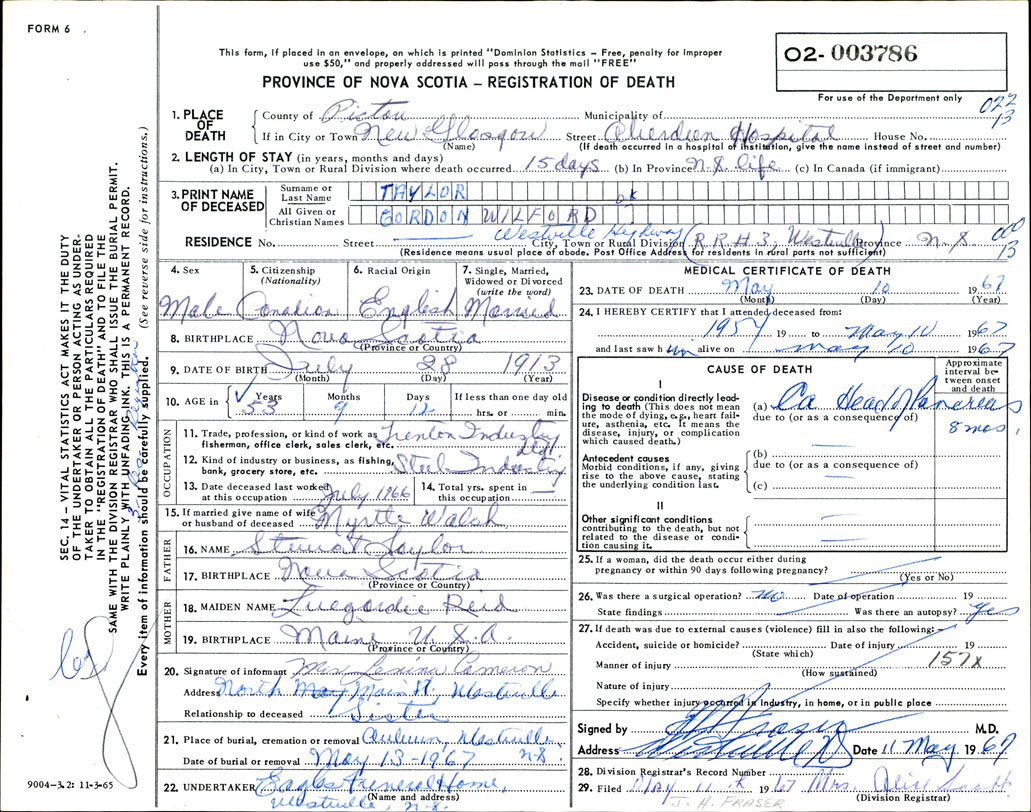 FORM 6
This form, if placed in an envelope, on which is printed "Dominion Statistics – Free, penalty for improper
use $50," and properly addressed will pass through the mail "FREE"
PROVINCE OF NOVA SCOTIA – REGISTRATION OF DEATH
O2-003786
For use of the Department only
022
13
1. PLACE OF DEATH
County of Pictou Municipality of
If in City or Town New Glasgow Street Aberdeen Hospital House No.
(Name) (If death occurred in a hospital or institution, give the name instead of street and number)
2. LENGTH OF STAY (in years, months and days)
(a) In City, Town or Rural Division where death occurred 15 days (b) In Province N.S. life (c) In Canada (if immigrant)
3. PRINT NAME OF DECEASED
Surname or Last Name TAYLOR
All Given or Christian Names GORDON WILFORD
OK
Westville Highway
RESIDENCE No. Street City, Town or Rural Division (R.R.# 3, Westville) Province N.S
(Residence means usual place of abode. Post Office Address for residents in rural parts not sufficient)
13
4. Sex 5. Citizenship (Nationality) 6. Racial Origin 7. Single, Married, Widowed or Divorced (write the word)
Male Canadian English Married
8. BIRTHPLACE Nova Scotia
(Province or Country)
9. DATE OF BIRTH July 28 1913
(Month) (Day) (Year)
10. AGE in Years Months Days If less than one day old
53 9 12 hrs. or min.
OCCUPATION
11. Trade, profession, or kind of work as fisherman, office clerk, sales clerk, etc. Trenton Industry
12. Kind of industry or business, as fishing, bank, grocery store, etc. Steel Industry
13. Date deceased last worked at this occupation July 1966 14. Total yrs. spent in this occupation
15. If married give name of wife or husband of deceased Myrtle Walsh
FATHER
16. NAME Stewart Taylor
17. BIRTHPLACE Nova Scotia
(Province or Country)
MOTHER
18. MAIDEN NAME Reid
19. BIRTHPLACE Maine U.S.A.
(Province or Country)
20. Signature of informant Mrs Lexina Cameron
Address North Main St, Westville
Relationship to deceased Sister
21. Place of burial, cremation or removal Auburn, Westville
Date of burial or removal May 13-1967 N.S.
22. UNDERTAKER Eagles Funeral Home,
Westville, N.S.
(Name and address)
MEDICAL CERTIFICATE OF DEATH
23. DATE OF DEATH May 10 1967
(Month) (Day) (Year)
24. I HEREBY CERTIFY that I attended deceased from:
1957 19 to May 10 1967
and last saw him alive on May 10 1967
CAUSE OF DEATH
Approximate interval between onset and death
I
Disease or condition directly leading to death (This does not mean the mode of dying, e.g., heart failure, asthenia, etc. It means the disease, injury, or complication which caused death.)
(a) Ca Head of Pancreas
due to (or as a consequence of) 8 mos.
Antecedent causes
Morbid conditions, if any, giving rise to the above cause, stating the underlying condition last.
(b)
due to (or as a consequence of)
(c)
II
Other significant conditions
contributing to the death, but not related to the disease or condition causing it.
25. If a woman, did the death occur either during pregnancy or within 90 days following pregnancy?
(Yes or No)
26. Was there a surgical operation? No Date of operation 19
State findings Was there an autopsy? Yes
27. If death was due to external causes (violence) fill in also the following:–
Accident, suicide or homicide? Date of injury 19
(State which)
Manner of injury 157x
(How sustained)
Nature of injury
Specify whether injury occurred in Industry, in home, or in public place
Signed by M.D.
Address Westville NS Date 11 May 1967
28. Division Registrar's Record Number
29. Filed May 11th 1967 Mrs.
(Division Registrar)
J. H. FRASER
SEC. 14 – VITAL STATISTICS ACT MAKES IT THE DUTY
OF THE UNDERTAKER OR PERSON ACTING AS UNDER-
TAKER TO OBTAIN ALL THE PARTICULARS REQUIRED
IN THE "REGISTRATION OF DEATH" AND TO FILE THE
SAME WITH THE DIVISION REGISTRAR WHO SHALL ISSUE THE BURIAL PERMIT.
WRITE PLAINLY WITH UNFADING INK. THIS IS A PERMANENT RECORD.
Every item of information should be carefully supplied. (See reverse side for instructions.)
9004-3.2: 11-3-65